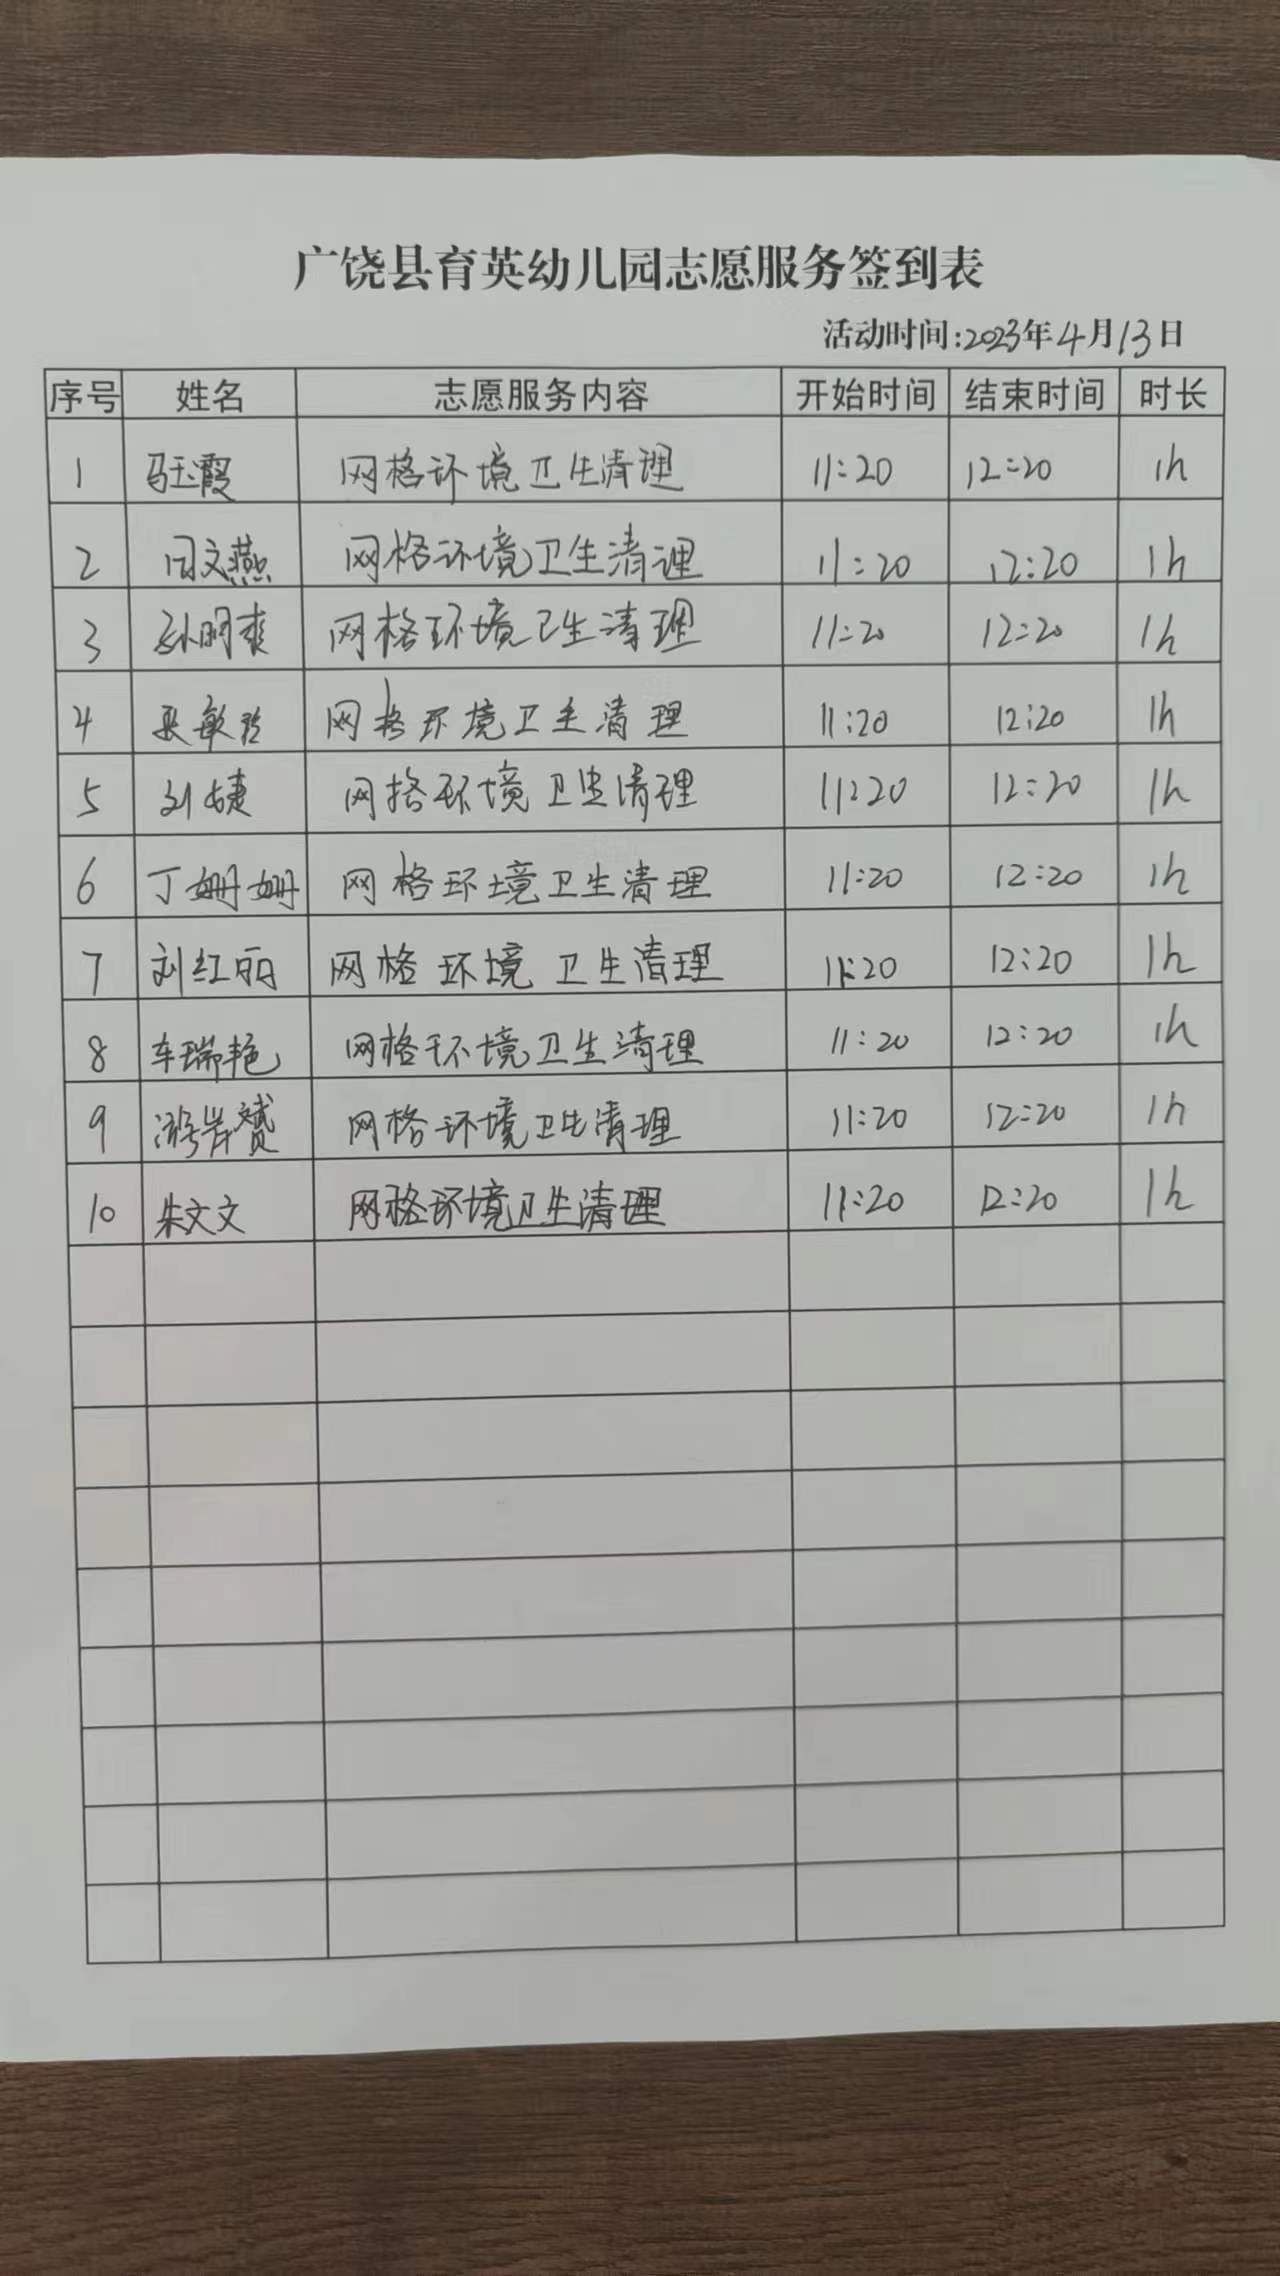 广饶县育英幼儿园志愿服务签到表
活动时间:2023年4月13日
序号 姓名 志愿服务内容 开始时间 结束时间 时长
1 马玉霞 网格环境卫生清理 11:20 12:20 1h
2 闫文燕 网格环境卫生清理 11:20 12:20 1h
3 孙明爽 网格环境卫生清理 11:20 12:20 1h
4 张敏玲 网格环境卫生清理 11:20 12:20 1h
5 刘婕 网格环境卫生清理 11:20 12:20 1h
6 丁姗姗 网格环境卫生清理 11:20 12:20 1h
7 刘红丽 网格环境卫生清理 11:20 12:20 1h
8 车瑞艳 网格环境卫生清理 11:20 12:20 1h
9 网格环境卫生清理 11:20 12:20 1h
10 朱文文 网格环境卫生清理 11:20 12:20 1h